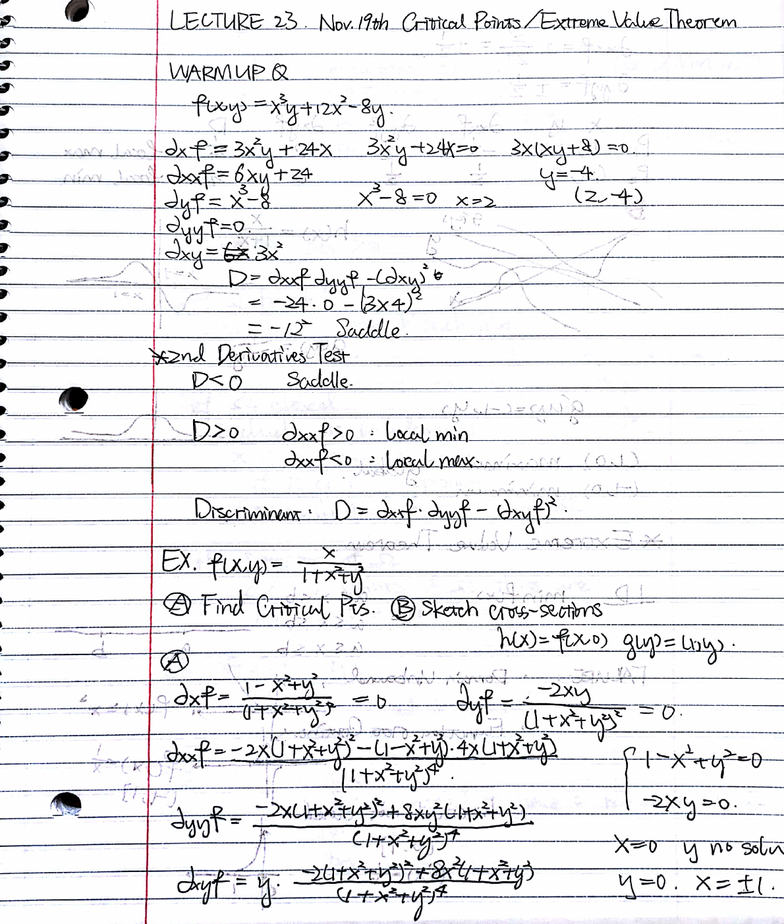 LECTURE 23. Nov. 19th Critical Points / Extreme Value Theorem
WARM UP Q
f(x,y) = x³y+12x²-8y.
∂xf = 3x²y + 24x 3x²y+24x=0 3x(xy+8)=0.
∂xxf = 6xy+24 y=-4.
∂yf = x³-8 x³-8=0 x=2 (2,-4)
∂yyf=0.
∂xy = 3x²
D = ∂xxf ∂yyf - (∂xy)²
= -24·0 - (3×4)²
= -12² Saddle.
*2nd Derivatives Test
D<0 Saddle.
D>0 ∂xxf>0 : Local min
∂xxf<0 : Local max.
Discriminant: D = ∂xxf · ∂yyf - (∂xyf)².
EX. f(x,y) = x/(1+x²+y²)
Ⓐ Find Critical Pts. Ⓑ Sketch cross-sections
h(x)=f(x,0) g(y)=(1,y).
Ⓐ
∂xf = (1-x²+y²)/(1+x²+y²)² = 0. ∂yf = -2xy/(1+x²+y²)² = 0.
∂xxf = (-2x(1+x²+y²)² - (1-x²+y²)·4x(1+x²+y²))/(1+x²+y²)⁴.
{ 1-x²+y²=0
-2xy=0.
∂yyf = (-2x(1+x²+y²)²+8xy²(1+x²+y²))/(1+x²+y²)⁴
x=0 y no solu
∂xyf = y· (-2(1+x²+y²)²+8x²(1+x²+y²))/(1+x²+y²)⁴
y=0. x=±1.